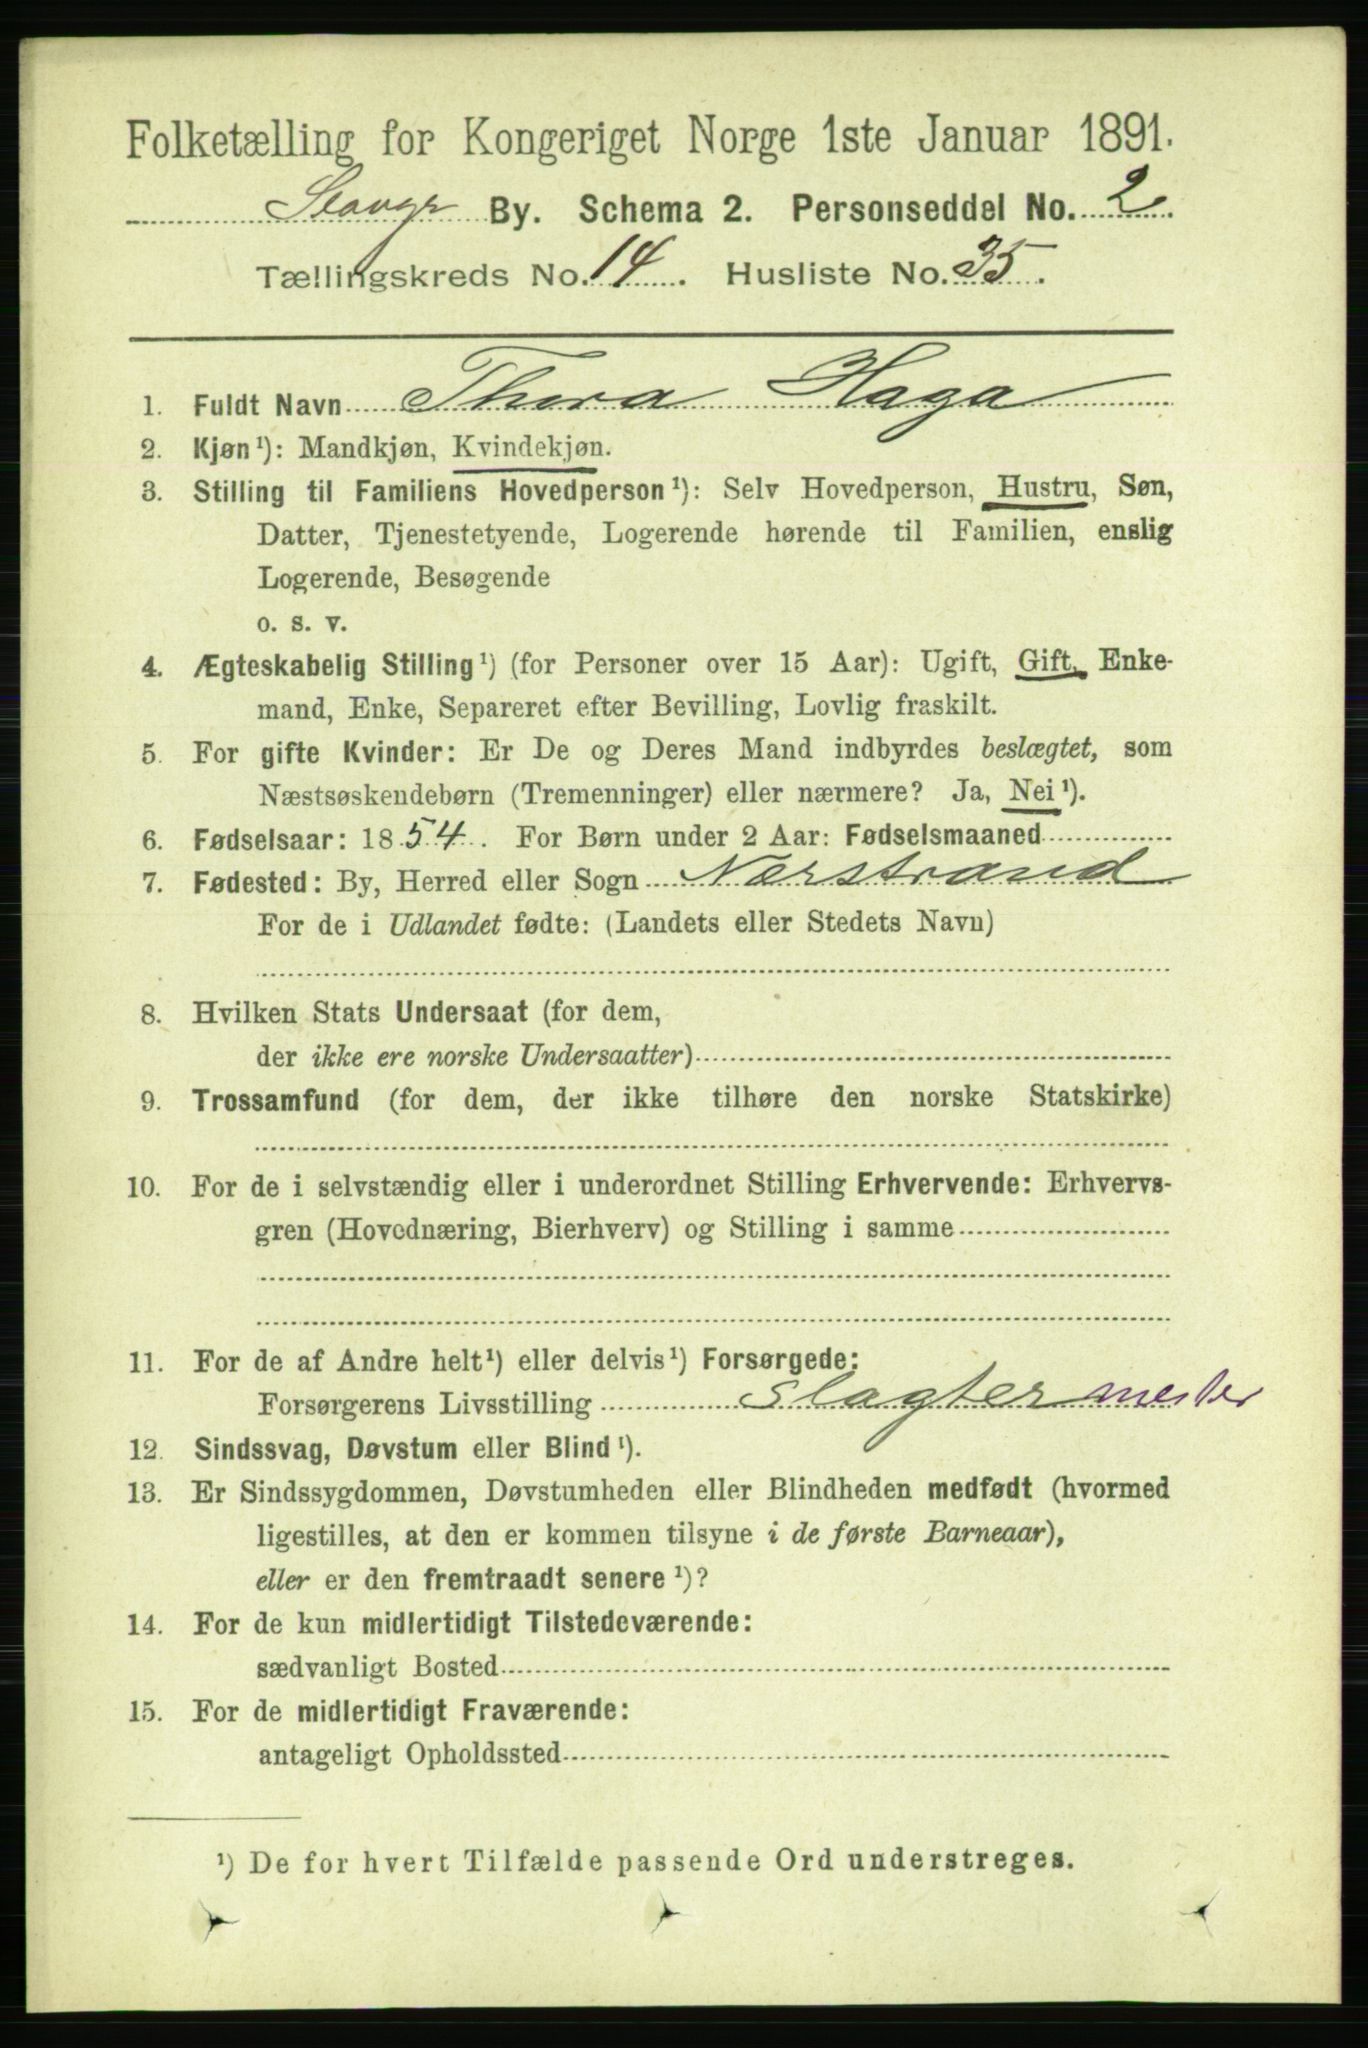 Folketælling for Kongeriget Norge 1ste Januar 1891.
Stavgr By. Schema 2. Personseddel No. 2.
Tællingskreds No. 14. Husliste No. 35.
1. Fuldt Navn Thora Haga
2. Kjøn¹): Mandkjøn, Kvindekjøn.
3. Stilling til Familiens Hovedperson¹): Selv Hovedperson, Hustru, Søn,
Datter, Tjenestetyende, Logerende hørende til Familien, enslig
Logerende, Besøgende
o. s. v.
4. Ægteskabelig Stilling¹) (for Personer over 15 Aar): Ugift, Gift, Enke-
mand, Enke, Separeret efter Bevilling, Lovlig fraskilt.
5. For gifte Kvinder: Er De og Deres Mand indbyrdes beslægtet, som
Næstsøskendebørn (Tremenninger) eller nærmere? Ja, Nei¹).
6. Fødselsaar: 1854. For Børn under 2 Aar: Fødselsmaaned
7. Fødested: By, Herred eller Sogn Nærstrand
For de i Udlandet fødte: (Landets eller Stedets Navn)
8. Hvilken Stats Undersaat (for dem,
der ikke ere norske Undersaatter)
9. Trossamfund (for dem, der ikke tilhøre den norske Statskirke)
10. For de i selvstændig eller i underordnet Stilling Erhvervende: Erhvervs-
gren (Hovednæring, Bierhverv) og Stilling i samme
11. For de af Andre helt¹) eller delvis¹) Forsørgede:
Forsørgerens Livsstilling Slagtermester
12. Sindssvag, Døvstum eller Blind¹).
13. Er Sindssygdommen, Døvstumheden eller Blindheden medfødt (hvormed
ligestilles, at den er kommen tilsyne i de første Barneaar),
eller er den fremtraadt senere¹)?
14. For de kun midlertidigt Tilstedeværende:
sædvanligt Bosted
15. For de midlertidigt Fraværende:
antageligt Opholdssted
¹) De for hvert Tilfælde passende Ord understreges.